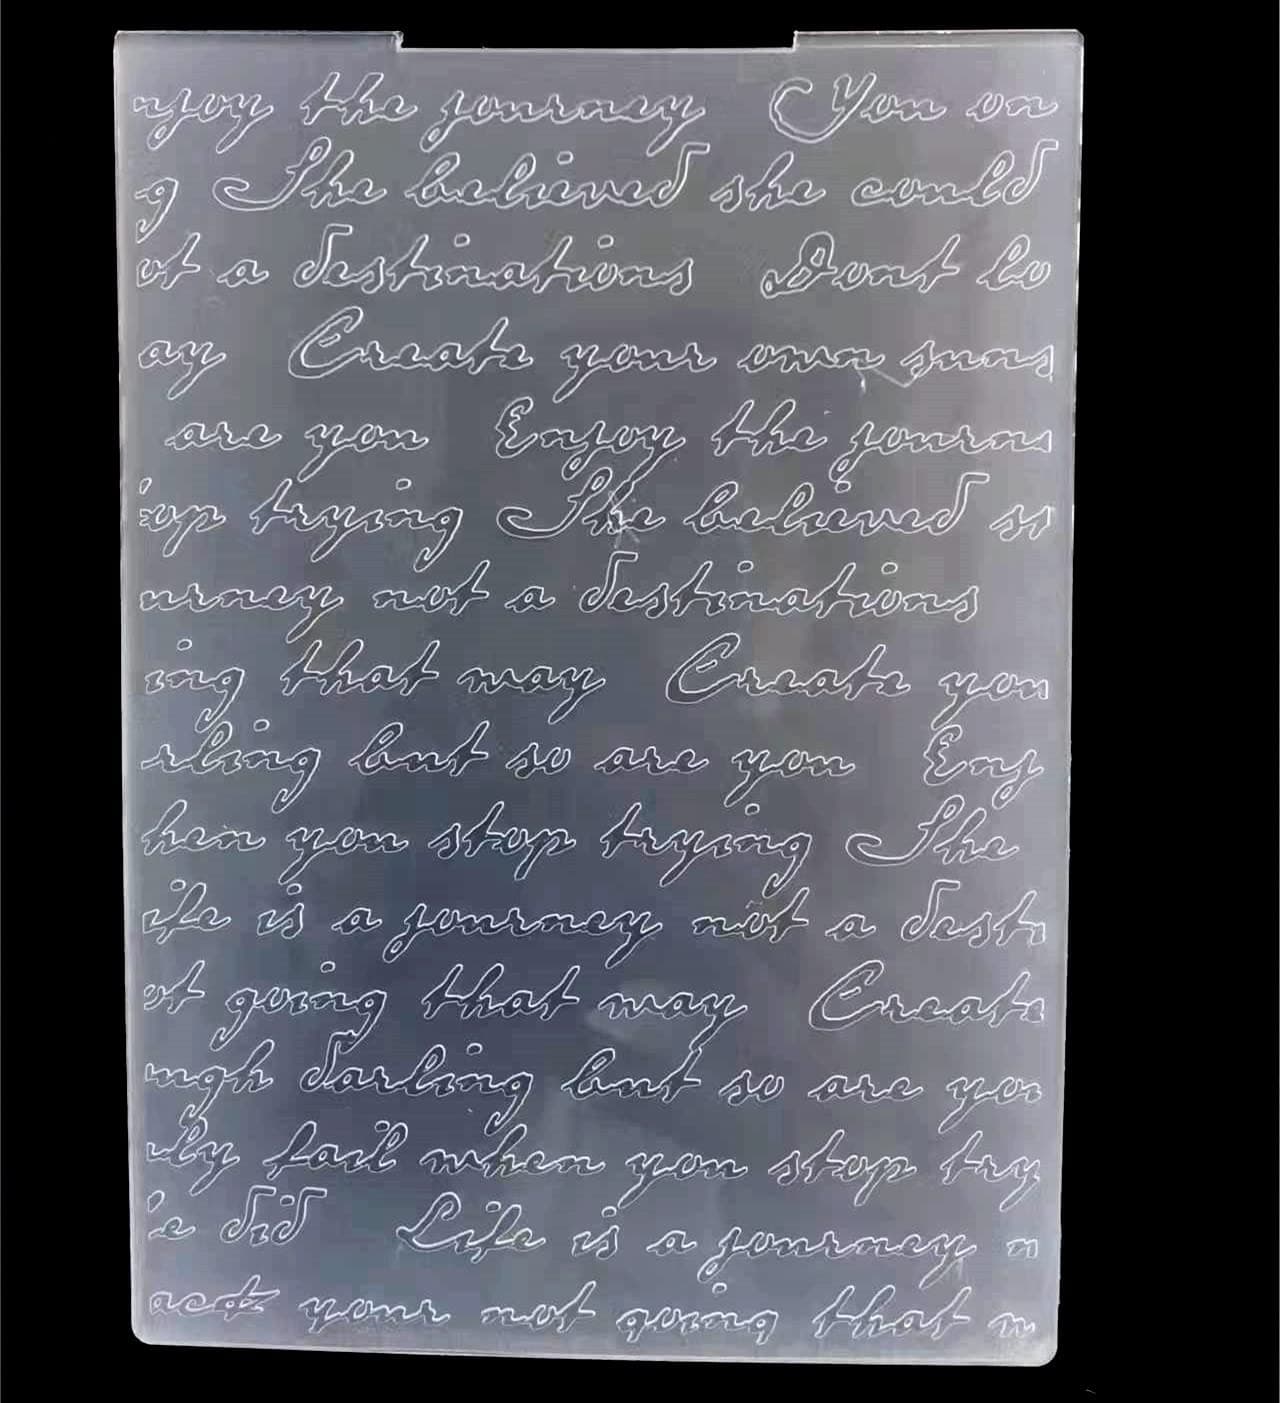 njoy the journey You on
g She believed she could
ot a destinations Dont lo
ay Create your own suns
are you Enjoy the journe
op trying She believed s
urney not a destinations
ing that may Create you
rling but so are you Enj
hen you stop trying She
ife is a journey not a desti
ot going that may Create
ugh darling but so are yo
ly fail when you stop try
e did Life is a journey n
back your not going that m